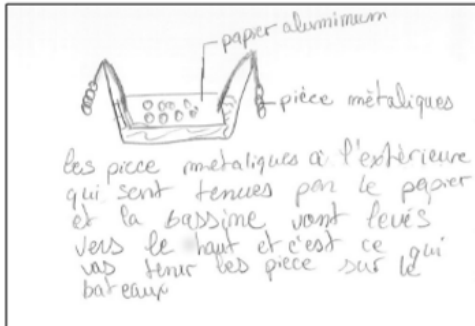 papier aluminium
pièce métaliques
les piece metaliques à l'extérieure
qui sont tenues par le papier
et la bassine vont levés
vers le haut et c'est ce qui
vas tenir les piece sur le
bateaux